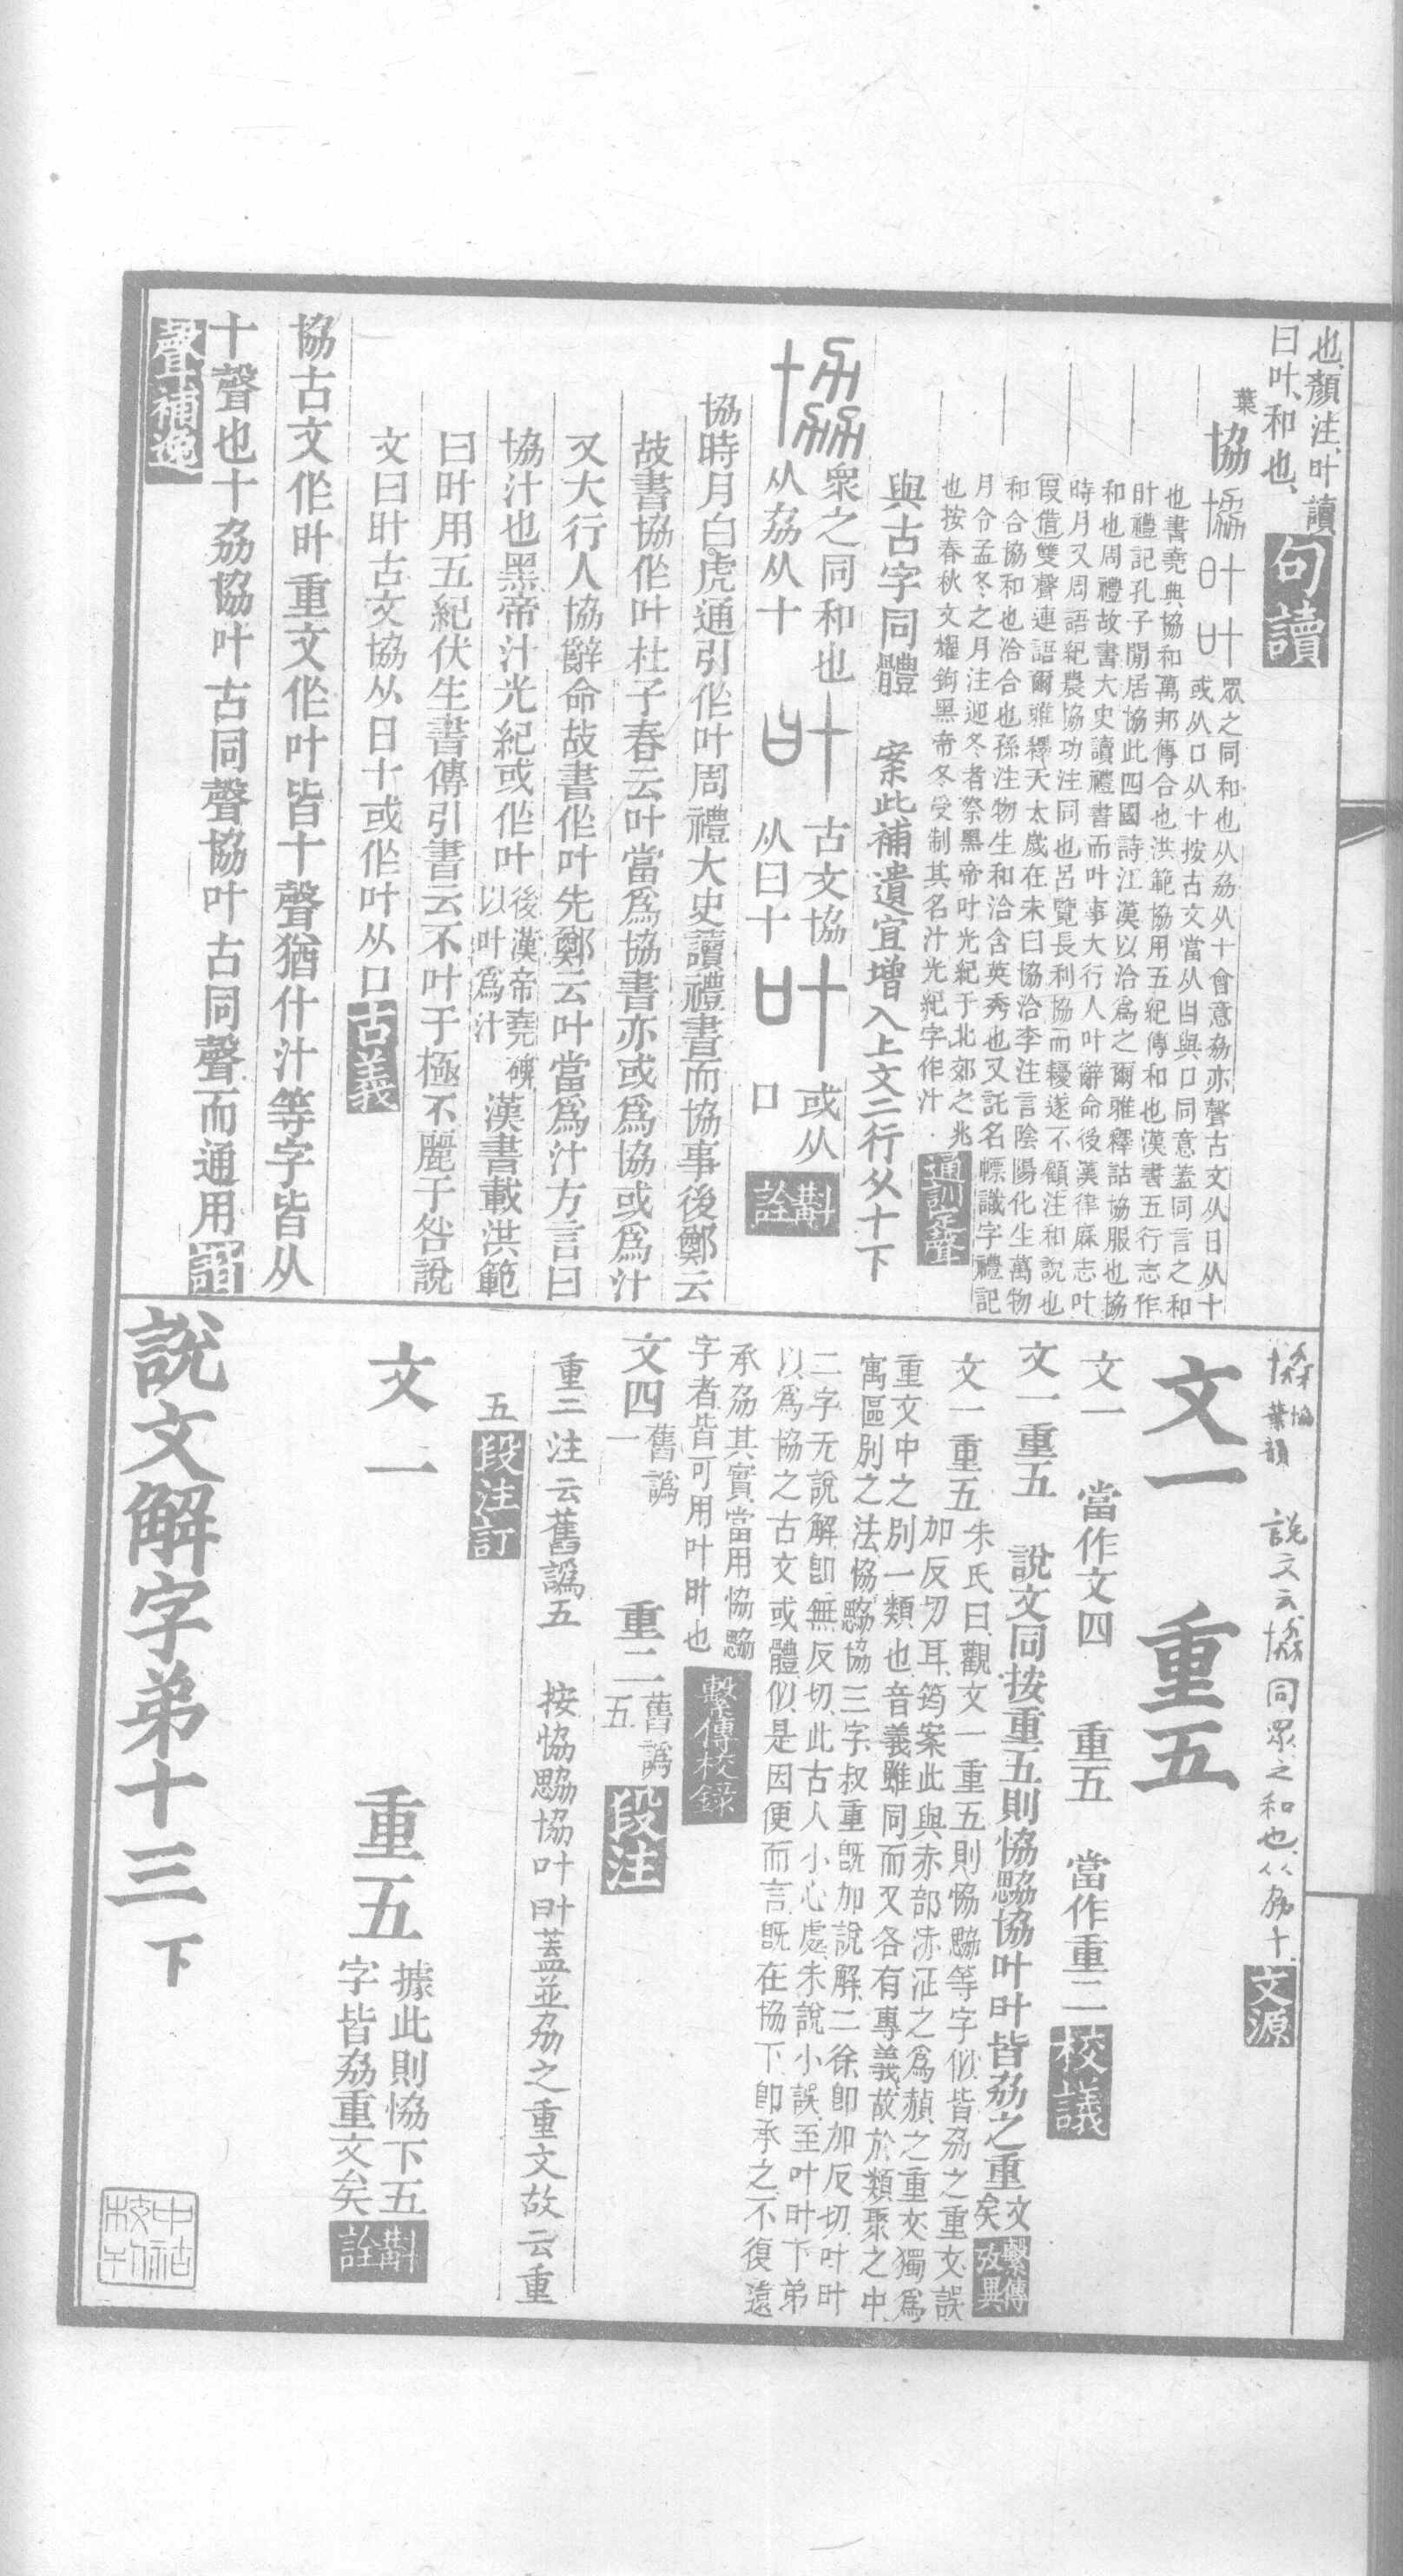 也、顏注、叶讀
曰叶、和也、
句讀
葉
協
叶
眾之同和也从劦从十會意劦亦聲古文从日从十
或从口从十按古文當从曰與口同意蓋同言之和
也書堯典協和萬邦傳合也洪範協用五紀傳和也漢書五行志作
叶禮記孔子閒居協此四國詩江漢以洽爲之爾雅釋詁協服也協
和也周禮故書大史讀禮書而叶事大行人叶辭命後漢律厤志叶
時月又周語紀農協功注同也呂覽長利協而耰遂不顧注和說也
叚借雙聲連語爾雅釋天太歲在未曰協洽李注言陰陽化生萬物
和合協和也洽合也孫注物生和洽含英秀也又託名幖識字禮記
月令孟冬之月注迎冬者祭黑帝叶光紀于北郊之兆
也按春秋文耀鉤黑帝冬受制其名汁光紀字作汁
通訓定聲
與古字同體 案此補遺宜增入上文二行从十下
眾之同和也
从劦从十
古文協
从曰十
或从
口
斠詮
協時月白虎通引作叶周禮大史讀禮書而協事後鄭云
故書協作叶杜子春云叶當爲協書亦或爲協或爲汁
又大行人協辭命故書作叶先鄭云叶當爲汁方言曰
協汁也黑帝汁光紀或作叶後漢帝堯碑以叶爲汁漢書載洪範
曰叶用五紀伏生書傳引書云不叶于極不麗于咎說
文曰叶古文協从日十或作叶从口
古義
協古文作叶重文作叶皆十聲猶什汁等字皆从
十聲也十劦協叶古同聲協叶古同聲而通用
聲補逸
協
葉韻
說文云協同眾之和也从劦十
文源
文一 重五
文一 當作文四 重五 當作重二
校議
文一重五 說文同按重五則恊勰協叶叶皆劦之重文矣
繫傳攷異
文一重五
朱氏曰觀文一重五則恊勰等字似皆劦之重文誤
加反切耳筠案此與赤部浾泟之爲赬之重文獨爲
重文中之別一類也音義雖同而又各有專義故於類聚之中
寓區別之法恊勰協三字叔重旣加說解二徐卽加反切叶叶
二字无說解卽無反切此古人小心處朱說小誤至叶叶下弟
以爲協之古文或體似是因便而言旣在協下卽承之不復遠
承劦其實當用恊勰
字者皆可用叶叶也
繫傳校錄
文四舊譌一 重二舊譌五
段注
重二注云舊譌五 按恊勰協叶叶蓋並劦之重文故云重
五
段注訂
文一 重五
據此則恊下五
字皆劦重文矣
斠詮
說文解字弟十三下